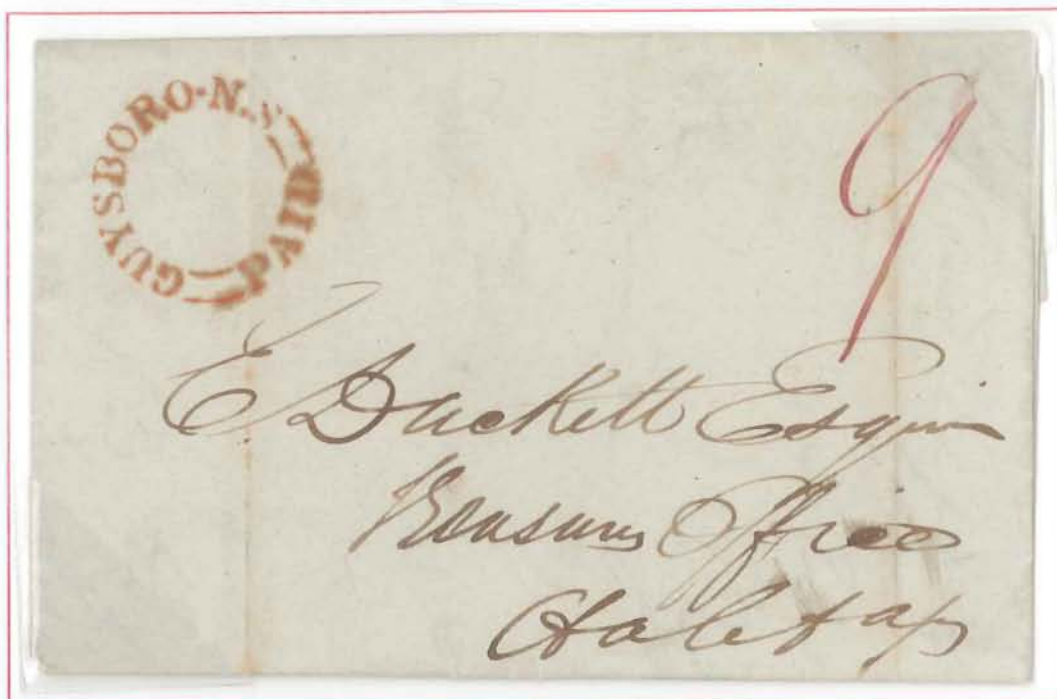 GUYSBORO-N.S PAID
9
E Duckett Esquire
Treasury Office
Halifax